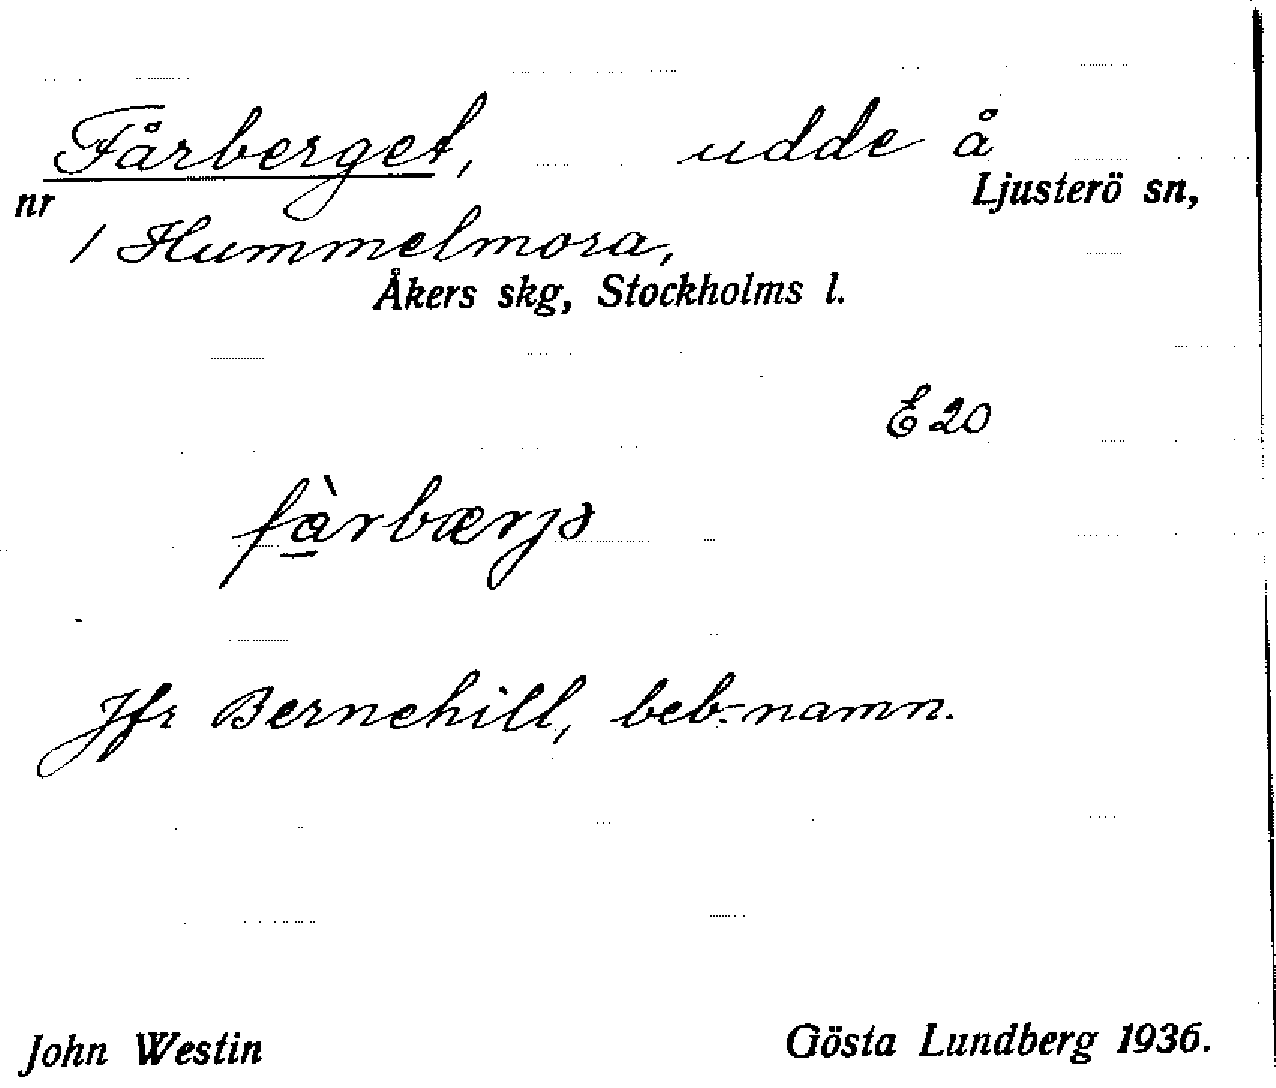 Fårberget, udde å
Ljusterö sn,
nr
1 Hummelmora,
Åkers skg, Stockholms l.
E 20
fà̱rbærjə
Jfr Bernehill, beb.-namn.
John Westin Gösta Lundberg 1936.